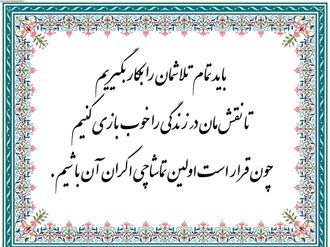 باید تمام تلاشمان را بکار بگیریم
تا نقش مان در زندگی را خوب بازی کنیم
چون قرار است اولین تماشاچی اکران آن باشیم .